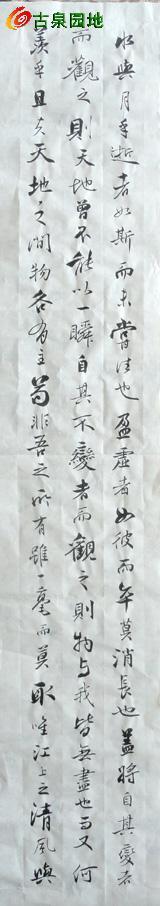 古泉园地
水與月乎逝者如斯而未嘗往也盈虛者如彼而卒莫消長也蓋將自其變者
而觀之則天地曾不能以一瞬自其不變者而觀之則物与我皆無盡也而又何
羨乎且夫天地之間物各有主苟非吾之所有雖一毫而莫取唯江上之清風與